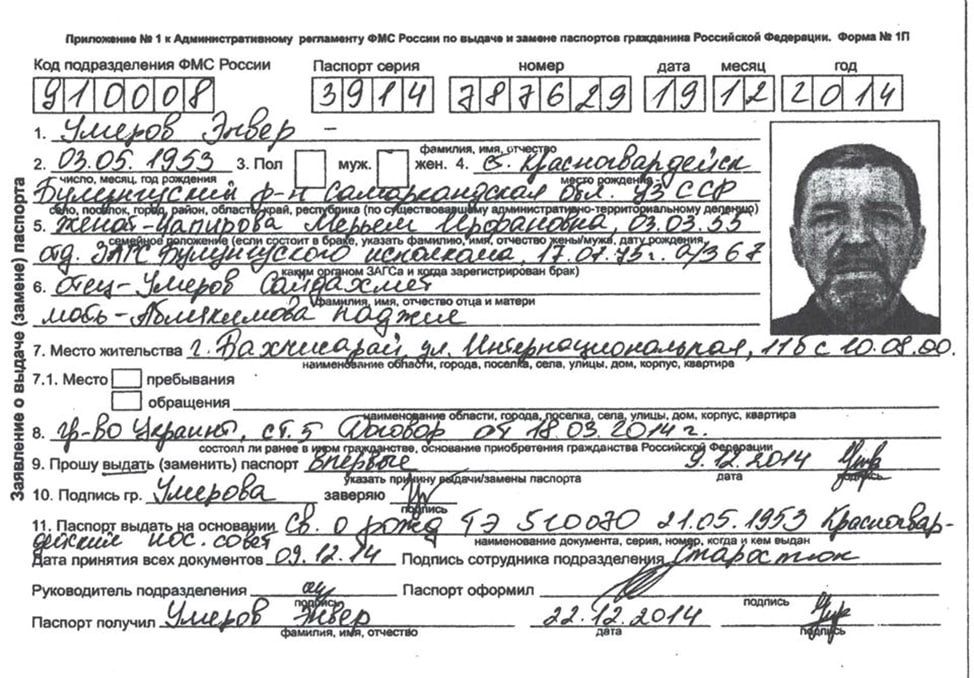 Приложение № 1 к Административному регламенту ФМС России по выдаче и замене паспортов гражданина Российской Федерации. Форма № 1П
Код подразделения ФМС России Паспорт серия номер дата месяц год
910008 3914 787629 19 12 2014
1. Умеров Энвер –
фамилия, имя, отчество
2. 03.05.1953 3. Пол муж. жен. 4. с. Красногвардейск
число, месяц, год рождения место рождения
Булунгусский р-н Самаркандская обл. УзССР
село, поселок, город, район, область, край, республика (по существовавшему административно-территориальному делению)
5. женат- Мерьем Ирфановна, 03.03.53
семейное положение (если состоит в браке, указать фамилию, имя, отчество жены/мужа, дату рождения,
отд. ЗАГС Булунгусского исполкома, 17.07.75г. а/з 67
каким органом ЗАГСа и когда зарегистрирован брак)
6. отец-Умеров Сайдахмет
фамилия, имя, отчество отца и матери
Наджие
7. Место жительства г. Бахчисарай, ул. Интернациональная, 11б с 10.08.00.
наименование области, города, поселка, села, улицы, дом, корпус, квартира
7.1. Место пребывания
обращения
наименование области, города, поселка, села, улицы, дом, корпус, квартира
8. гр-во Украины, ст. 5 Договор от 18.03.2014 г.
состоял ли ранее в ином гражданстве, основание приобретения гражданства Российской Федерации
9. Прошу выдать (заменить) паспорт впервые 9.12.2014
указать причину выдачи/замены паспорта дата подпись
10. Подпись гр. Умерова заверяю
подпись
11. Паспорт выдать на основании Св. о рожд ТЭ 510070 21.05.1953 Красногвар-
дейский пос. совет
наименование документа, серия, номер, когда и кем выдан
Дата принятия всех документов 09.12.14 Подпись сотрудника подразделения Старостюк
Руководитель подразделения Паспорт оформил
подпись подпись
Паспорт получил Умеров Энвер 22.12.2014
фамилия, имя, отчество дата подпись
Заявление о выдаче (замене) паспорта